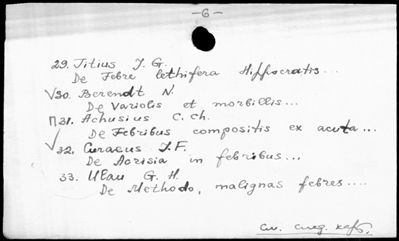 -6-
29. Titius J. G.
De Febre lethifera Hippocratis...
√30. Berendt N.
De Variolis et morbillis...
П31. Achusius C. Ch.
De Febribus compositis ex acuta...
√32. Curaeus J. F.
De Acrisia in febribus...
33. Ulau G. H.
De Methodo, malignas febres....
См. след. карт.